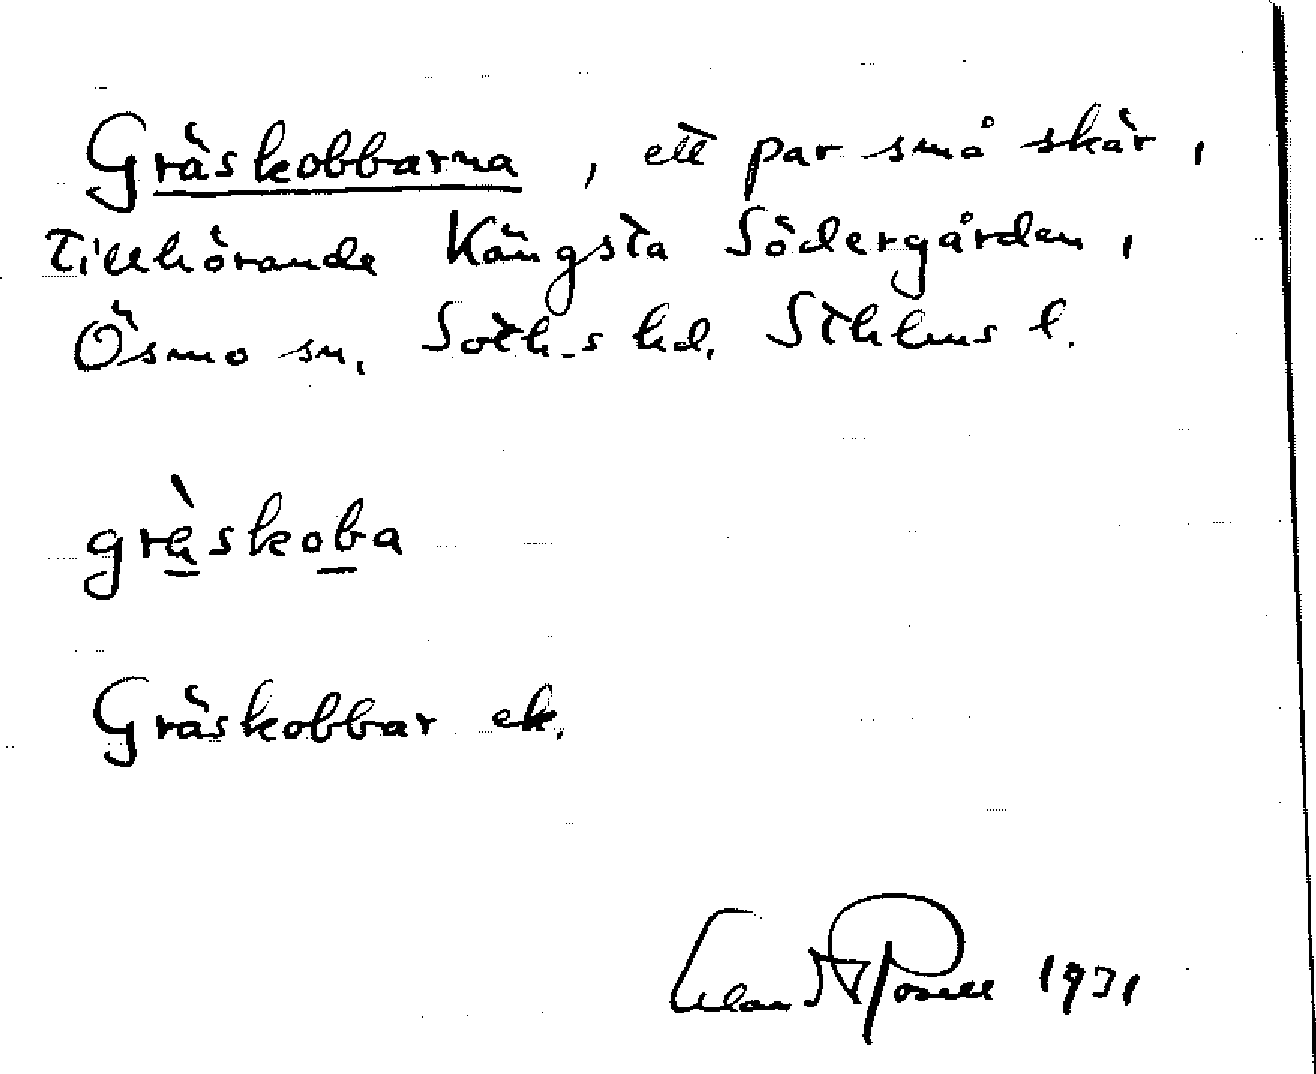 Gräskobbarna, ett par små skär,
tillhörande Kängsta Södergården,
Ösmo sn, Soth-s hd, Sthlms l.
gràskoba
Gräskobbar ek.
1931